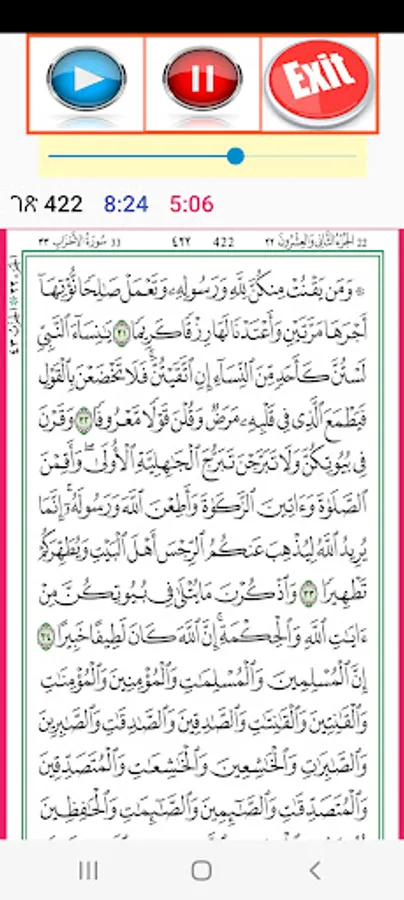 Exit
ገጽ 422 8:24 5:06
22 الجزء الثاني والعشرون ٢٢ 422 ٤٢٢ 33 سورة الأحزاب ٣٣
۞ وَمَن يَقْنُتْ مِنكُنَّ لِلَّهِ وَرَسُولِهِۦ وَتَعْمَلْ صَٰلِحًا نُّؤْتِهَآ
أَجْرَهَا مَرَّتَيْنِ وَأَعْتَدْنَا لَهَا رِزْقًا كَرِيمًا ٣١ يَٰنِسَآءَ ٱلنَّبِيِّ
لَسْتُنَّ كَأَحَدٍ مِّنَ ٱلنِّسَآءِ إِنِ ٱتَّقَيْتُنَّ فَلَا تَخْضَعْنَ بِٱلْقَوْلِ
فَيَطْمَعَ ٱلَّذِى فِى قَلْبِهِۦ مَرَضٌ وَقُلْنَ قَوْلًا مَّعْرُوفًا ٣٢ وَقَرْنَ
فِى بُيُوتِكُنَّ وَلَا تَبَرَّجْنَ تَبَرُّجَ ٱلْجَٰهِلِيَّةِ ٱلْأُولَىٰ ۖ وَأَقِمْنَ
ٱلصَّلَوٰةَ وَءَاتِينَ ٱلزَّكَوٰةَ وَأَطِعْنَ ٱللَّهَ وَرَسُولَهُۥٓ ۚ إِنَّمَا
يُرِيدُ ٱللَّهُ لِيُذْهِبَ عَنكُمُ ٱلرِّجْسَ أَهْلَ ٱلْبَيْتِ وَيُطَهِّرَكُمْ
تَطْهِيرًا ٣٣ وَٱذْكُرْنَ مَا يُتْلَىٰ فِى بُيُوتِكُنَّ مِنْ
ءَايَٰتِ ٱللَّهِ وَٱلْحِكْمَةِ ۚ إِنَّ ٱللَّهَ كَانَ لَطِيفًا خَبِيرًا ٣٤
إِنَّ ٱلْمُسْلِمِينَ وَٱلْمُسْلِمَٰتِ وَٱلْمُؤْمِنِينَ وَٱلْمُؤْمِنَٰتِ
وَٱلْقَٰنِتِينَ وَٱلْقَٰنِتَٰتِ وَٱلصَّٰدِقِينَ وَٱلصَّٰدِقَٰتِ وَٱلصَّٰبِرِينَ
وَٱلصَّٰبِرَٰتِ وَٱلْخَٰشِعِينَ وَٱلْخَٰشِعَٰتِ وَٱلْمُتَصَدِّقِينَ
وَٱلْمُتَصَدِّقَٰتِ وَٱلصَّٰٓئِمِينَ وَٱلصَّٰٓئِمَٰتِ وَٱلْحَٰفِظِينَ